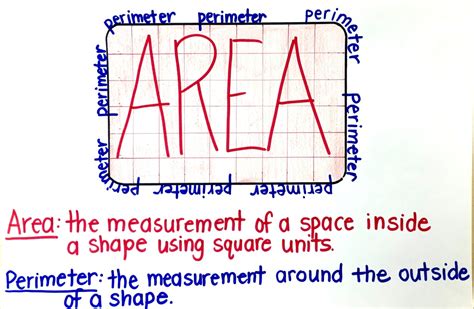 perimeter perimeter perimeter
perimeter
perimeter
AREA
perimeter
perimeter
perimeter perimeter perimeter perimeter
Area: the measurement of a space inside
a shape using square units.
Perimeter: the measurement around the outside
of a shape.